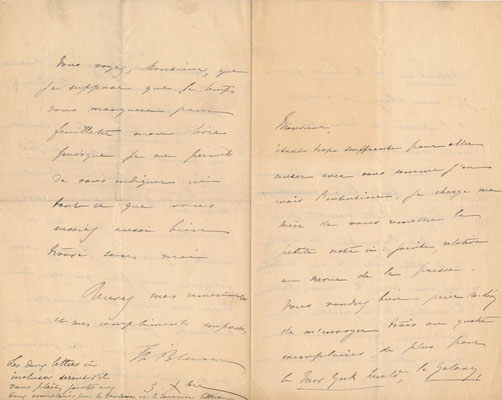 Monsieur,
étant trop souffrante pour aller
causer avec vous comme j'en
avais l'intention, je charge ma
mère de vous remettre la
petite note ci jointe relative
au service de la presse.
Vous voudrez bien pour
de m'envoyer trois ou quatre
exemplaires de plus pour
le New York Herald, le Galaxy
Vous voyez, Monsieur, que
je suppose que le temps
vous manquera pour
feuilleter mon livre
puisque je me permets
de vous indiquer ici
tout ce que vous
auriez aussi bien
trouvé sans moi
Recevez mes
et mes compliments
Th Bl
3 Xbre
Les deux lettres ci
incluses seront s'il
vous plaît, jointes aux
deux exemplaires pour le et le